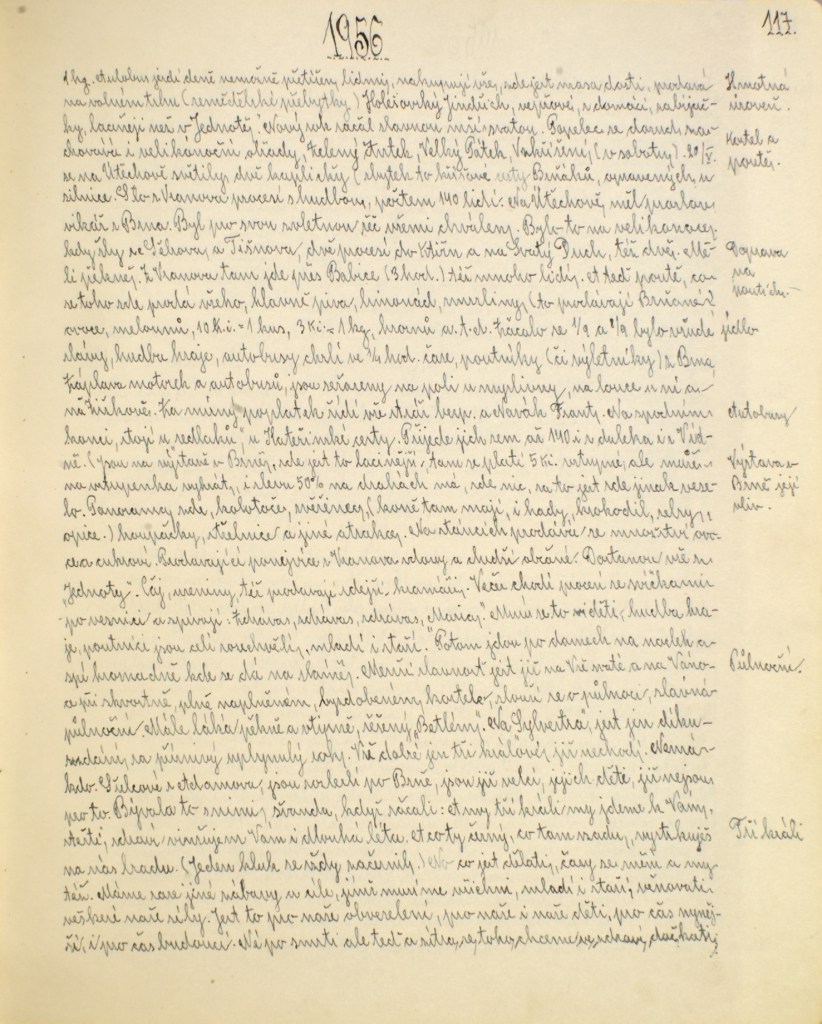 1956
117.
1 kg. Autobus jezdí denně nesmírně přetížen lidmi, nakupují vše, zde jest masa dosti, prodává
na volném trhu (zemědělské přebytky) Holczovský Jindřich, vepřové, z domácí zabijač-
ky, laciněji než v Jednotě! Nový rok začal slavnou mší svatou. Popelec se doma za-
chovává i velikonoční obřady, Zelený Čtvrtek, Velký Pátek, Vzkříšení, (v sobotu). 20/V.
se na Útěchově světily dvě kapličky (zbytek to křížové cesty Brňáků, opravených, u
silnice. Šlo z Vranova procesí s hudbou, počtem 140 lidí. Na Útěchově měl
vikář z Brna. Byl pro svou světnou řeč všemi chválen. Bylo to na velikonoce,
kdy šly i z Šebrova, a Tišnova, dvě procesí do Křtin a na Svatý Duch, též dvě. Mě-
li pěkně. Z Vranova tam jde přes Babice (3 hod.) též mnoho lidí. A teď poutě, co
se toho zde prodá všeho, hlavně piva, limonád, zmrzliny, (to prodávají Brňané)
ovoce, melounů, 10 Kč. = 1 kus, 3 Kč. = 1 kg, hroznů a.t.d. Začalo se 1/9 a 8/9 bylo všude
slávy, hudba hraje, autobusy chrlí ve 1/4 hod. čase, poutníky (či výletníky) z Brna,
Záplava motorek a autobusů, jsou seřazeny na poli u myslivny, na louce u ní a
na Zříkově. Za mírný poplatek řídí vše stráž bezp. a Novák Franty. Na spodním
konci, stojí u sedláků, u Kateřinské cesty. Přijede jich sem až 140. i z daleka i z Víd-
ně. (Jsou na výstavě v Brně, zde jest to lacinější, tam se platí 5 Kč. vstupné, ale může
na vstupenka vyhrát, i slevu 50% na drahách má, zde nic, za to jest zde jinak vese-
lo. Panorama, zde, kolotoče, zvěřinec, (koně tam mají, i hady, krokodil, zebry,
opice.) houpačky, střelnice a jiné atrakce. Na stáncích prodává se množství ovo-
ce a cukroví. Prodavající ponejvíce z Vranova vdovy a chudší občané. Dostanou vše z
„Jednoty“. Čaj, uzeniny, též prodavají zdejší kramáři. Večer chodí procesí se svíčkami
po vesnici a spívají: Zdrávas, zdrávas, zdrávas, Maria." Musí se to viděti, hudba hra-
je, poutníci jsou celí rozechvělí, mladí i staří." Potom jdou po domech na nocleh a
spí hromadně kde se dá na slámě. Menší slavnost jest již na Vše svaté a na Váno-
ce při skvostně, plně naplněném, vyzdobeném kostele, slouží se o půlnoci, slavná
půlnoční. Mále láká pěkně a vtipně, řešený „Betlém“. „Na Sylvestra“, jest jen díku-
vzdání, za příznivý uplynulý roky. V té době jen tři králové, již nechodí. Nemá
kdo. Střelcové z Adamova, jsou rozlezlí po Brně, jsou již velcí, jejich děti, již nejsou
pro to. Bývala to s nimi, švanda, když začali: a my tři králi my jdeme k Vám,
štěstí, zdraví vinšujem Vám i dlouhá léta. A co ty černý, co tam vzadu, vystrkuješ
na nás bradu. (Jeden kluk se vždy začernil.) No co jest dělati, časy se mění a my
též. Máme zase jiné zábavy a cíle, jimž musíme všichni, mladí i staří, věnovati
veškeré naše síly. Jest to pro naše obveselení, pro naše i naše děti, pro čas nyněj-
ší, i pro čas budoucí. Né po smrti ale teď a zítra, se toho chceme ve zdraví, dočkati.
Hmotná
úroveň.
Kostel a
poutě.
Doprava
na
poutích.
jídlo
Autobusy
Výstava v
Brně její
vliv.
Půlnoční.
Tři králi